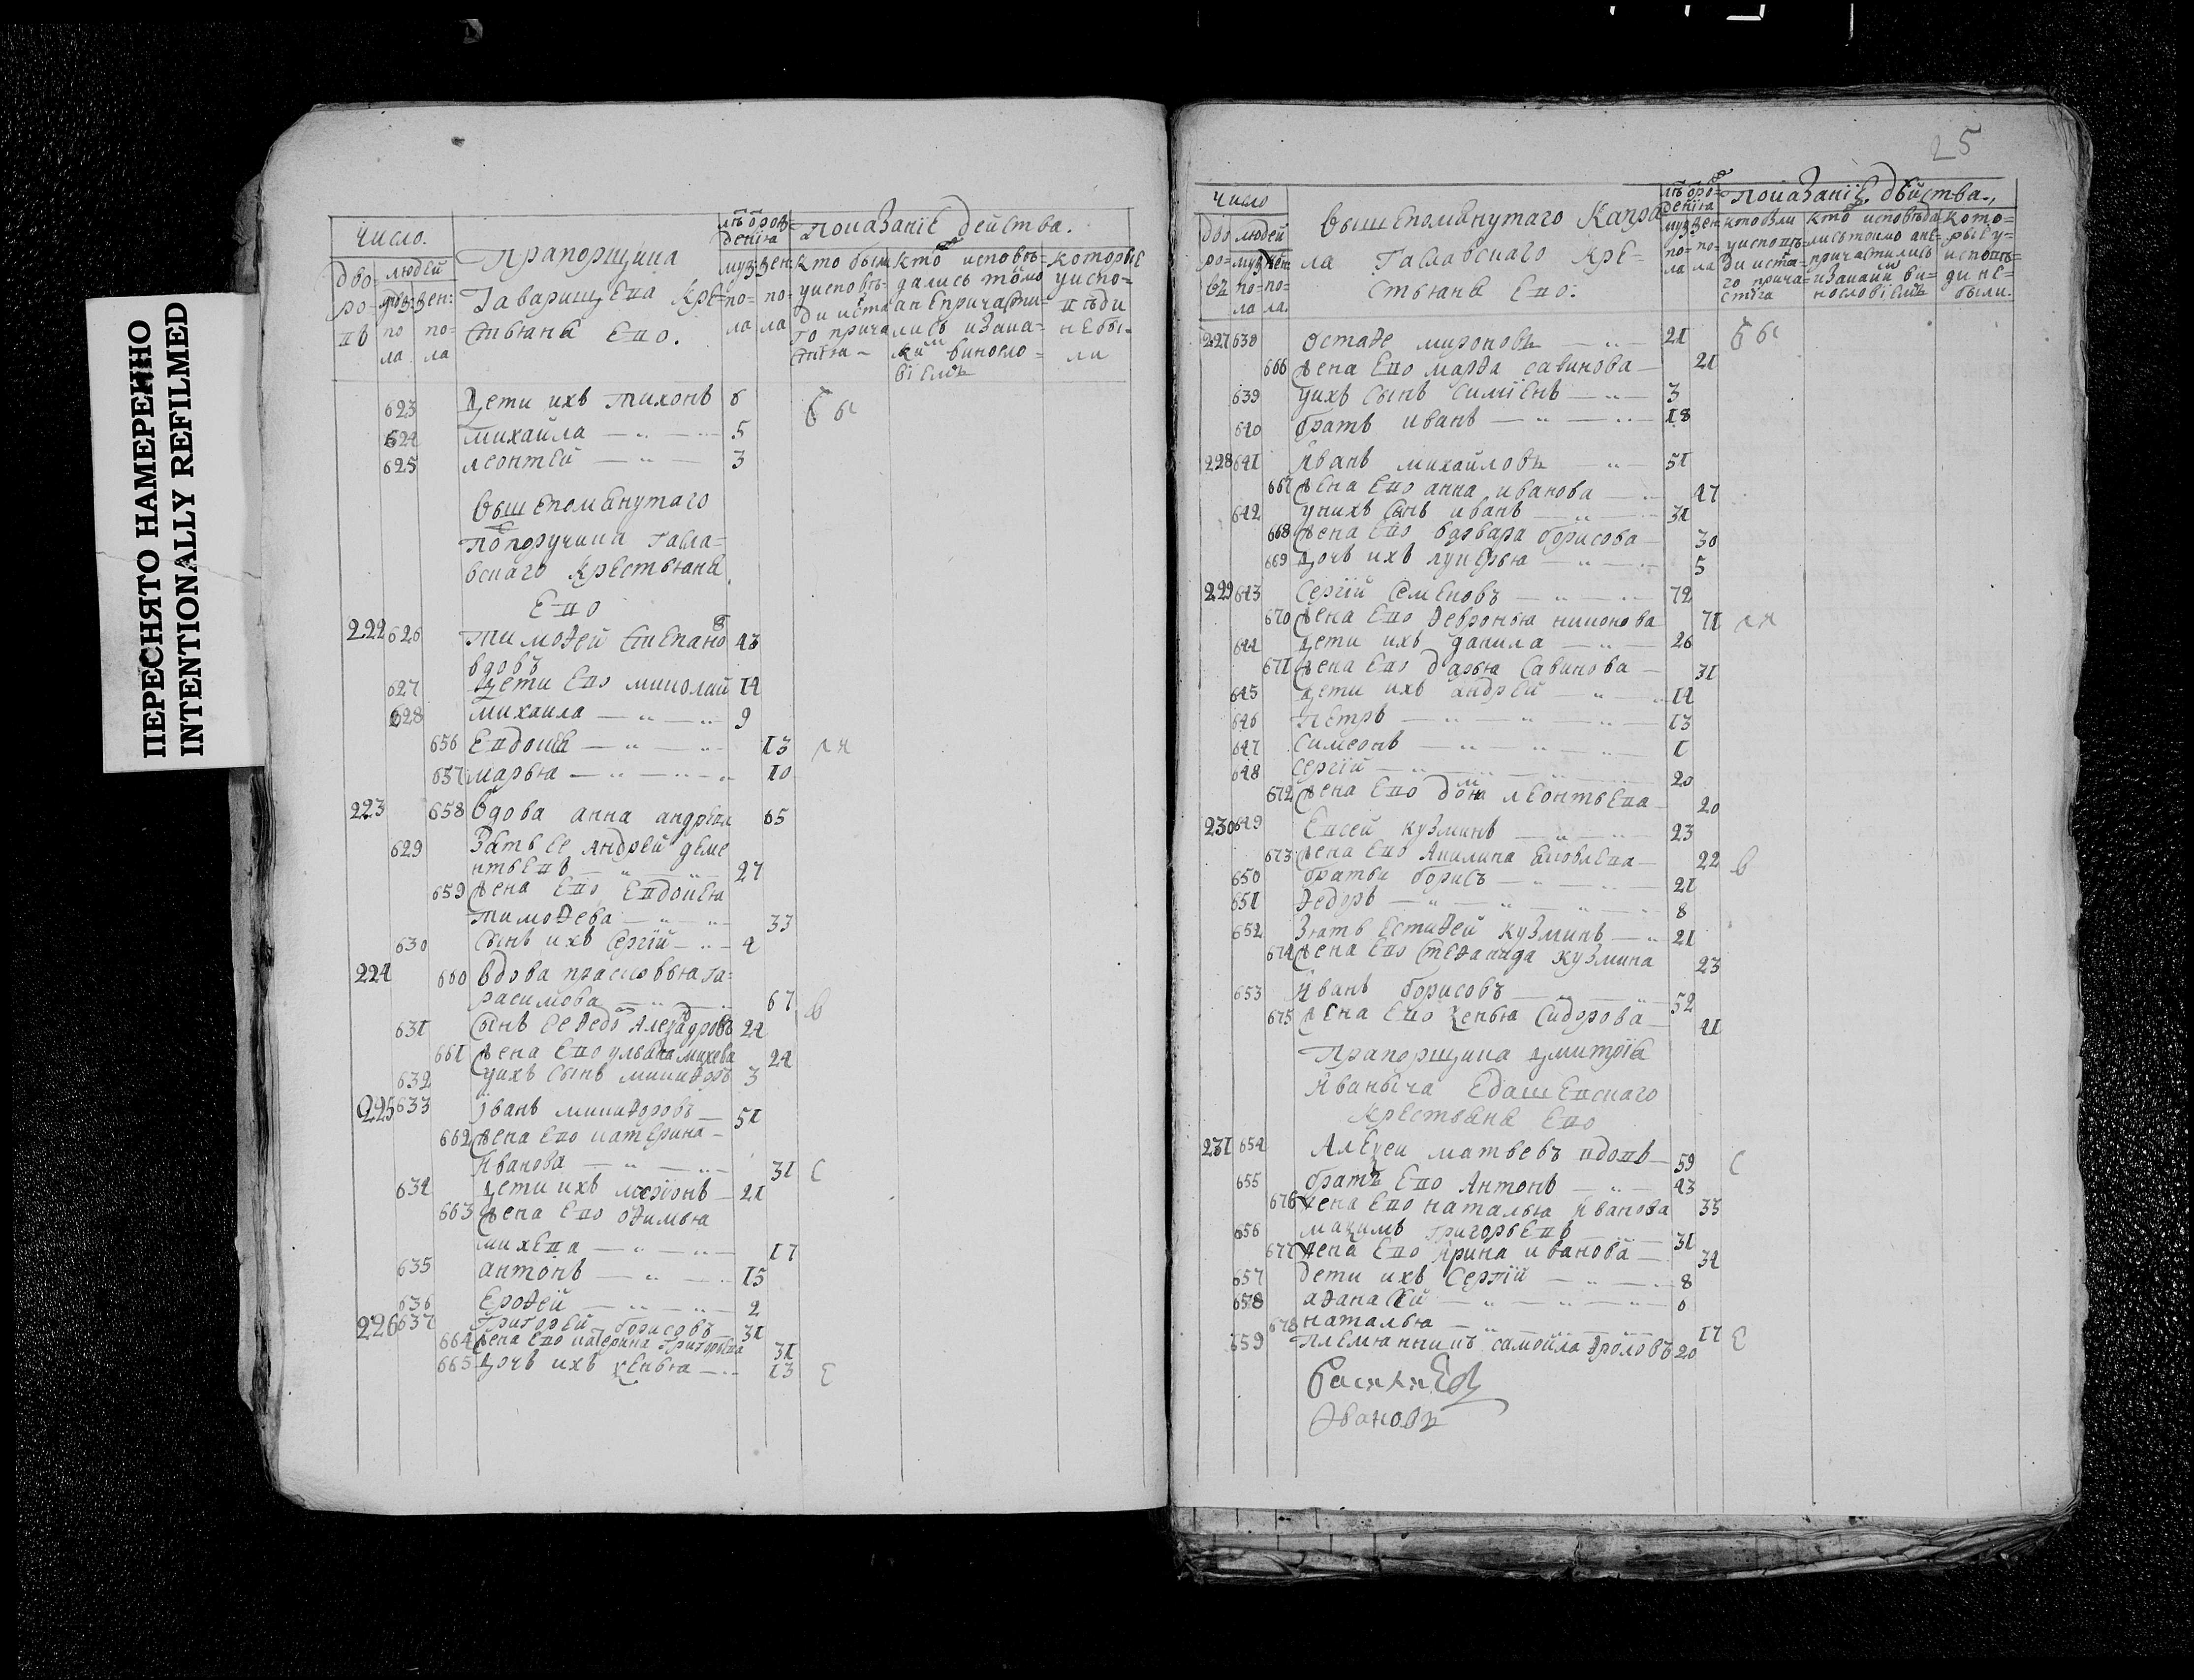 ПЕРЕСНЯТО НАМЕРЕННО
INTENTIONALLY REFILMED
Число.
дворовъ
людей
муж: жен:
пола пола
Прапорщика
крестьяне ево.
лѣтъ отрождения
Показаніе действа.
кто были у исповѣди и ста го прича стия
кто исповѣ дались токмо а не прича сти лись и за ка ким винсло віемъ
которые у испо вѣди не бы ли
623 Дети ихъ тихонъ 6 бы
624 михайла 5
625 леонтей 3
вышепомянутаго
Порутчика
крестьяне
ево
222 626 тимоѳей степано 43
вдовъ
627 Дети ево николай 14
628 михаила 9
656 евдокия 13 лн
657 марья 10
223 658 вдова анна андреева 65
629 Зять ее андрей деме
нтьевъ 27
659 жена ево евдокея
тимоѳева 33
630 сынъ ихъ сергїй 4
224 660 вдова прасковья га
расимова 67 в
631 сынъ ее ѳедоръ 24
661 жена ево ульяна михева 24
632 у ихъ сынъ никиѳоръ 3
225 633 иванъ никиѳоровъ 51
662 жена ево катерина
иванова 31 с
634 дети ихъ 21
663 жена ево оѳимья
михева 17
635 антонъ 15
636 ероѳей 2
226 637 григорей борисовъ 31
664 жена ево катерина григорьева 31
665 дочь ихъ ксенья 13 е
25
число
дво ро въ
людей
муж жен
по ла по ла
вышепомянутаго капра
ла крестьяне ево:
лѣтъ отро дения
Показанїе дѣйства.,
227 638 остаѳе мироновъ 21 бы
666 жена ево марѳа савинова 21
639 у ихъ сынъ симїенъ 3
640 братъ иванъ 18
228 641 иванъ михайловъ 51
667 жена ево анна иванова 47
642 у нихъ сынъ иванъ 31
668 жена ево варвара борисова 30
669 дочь ихъ лукерья 5
229 643 сергїй семеновъ 72
670 жена ево ѳевронья никонова 71 лн
644 дети ихъ данила 26
671 жена ево дарья савинова 31
645 дети ихъ андрей 14
646 петръ 13
647 симеонъ 1
648 сергїй 20
672 жена ево домна леонтьева 20
230 649 евсей кузминъ 23
673 жена ево акилина яковлева 22 в
650 братья борисъ 21
651 ѳедоръ 8
652 Зять естаѳей кузминъ 21
674 жена ево стеѳанида кузмина 23
653 иванъ борисовъ 52
675 жена ево ксенья сидорова 41
Прапорщика дмитрїя
иваныча
крестьяне ево
231 654 алексеи матвевъ вдовъ 59 с
655 братъ ево антонъ 43
676 жена ево наталья иванова 33
656 максимъ григорьевъ 31
677 жена ево ирина иванова 34
657 дети ихъ сергїй 8
658 аѳанасей 6
678 наталья 17 е
659 племянникъ самойла ѳроловъ 20
Ивановъ